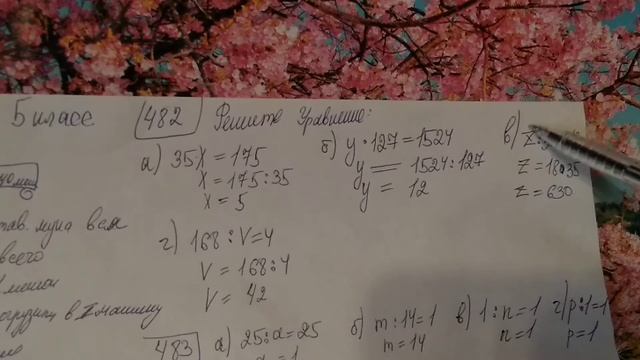 5 класс
482 Решите Уравнение:
а) 35X = 175
X = 175:35
X = 5
б) y · 127 = 1524
y = 1524:127
y = 12
в) Z:
Z = 18·35
Z = 630
г) 168 : V = 4
V = 168:4
V = 42
мука вся
всего
в Z машину
483 а) 25:a = 25
a = 1
б) m:14=1
m=14
в) 1:n=1
n=1
г) p:1=1
p=1